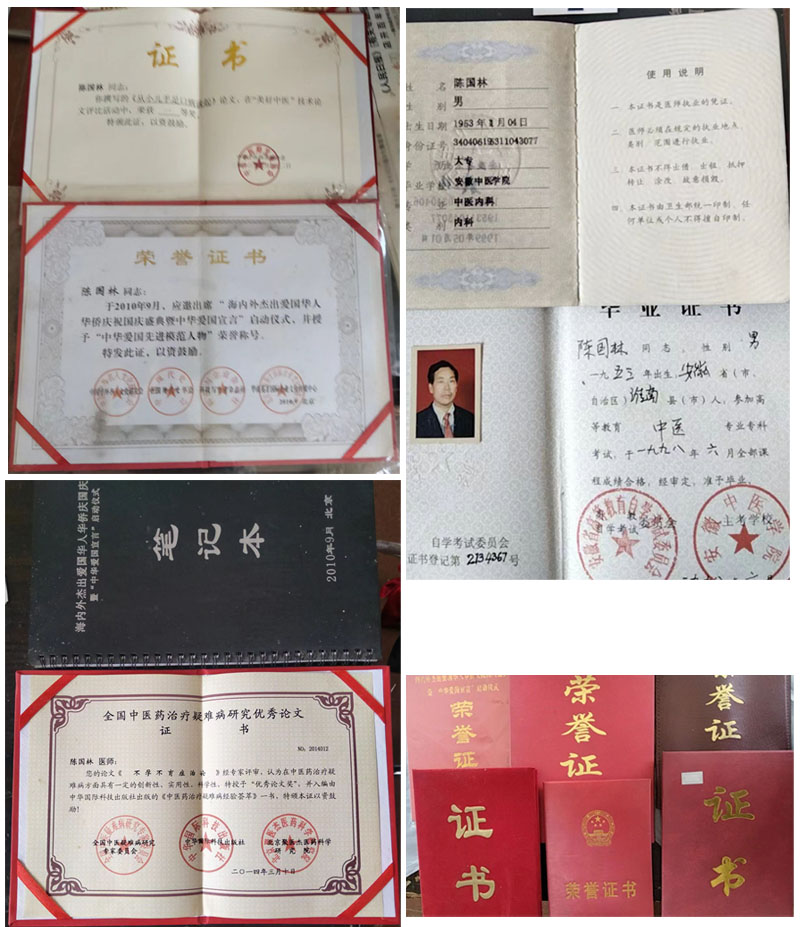 证 书
陈国林 同志：
文评比活动中，荣获 等奖，
特颁此证，以资鼓励。
荣誉证书
陈国林 同志：
于2010年9月，应邀出席“海内外杰出爱国华人
华侨庆祝国庆盛典暨中华爱国宣言”启动仪式，并授
予“中华爱国先进模范人物”荣誉称号。
特发此证，以资鼓励。
2010.9 北京
姓 名 陈国林
性 别 男
出生日期 1953年11月04日
身份证号
大专
毕业学校 安徽中医学院
中医内科
类 别 内科
使用说明
一、本证书是医师执业的凭证。
二、医师必须在规定的执业地点、
类别、范围进行执业。
三、本证书不得出借、出租、抵押
转让、涂改、故意损毁。
四、本证书由卫生部统一印制，任
何单位或个人不得擅自印制。
毕业证书
陈国林 同志，性别 男
、一九五三年出生，安徽省（市、
自治区）淮南县（市）人，参加高
等教育 中医 专业专科
考试，于一九九八年六月全部课
程成绩合格，经审定，准予毕业。
安徽省高等教育自学考试委员会
安徽中医学院
主考学校
自学考试委员会
证书登记第 2134367 号
海内外杰出爱国华人华侨庆国庆
暨“中华爱国宣言”启动仪式
笔记本
2010年9月 北京
全国中医药治疗疑难病研究优秀论文
证 书
NO：2014012
陈国林 医师：
您的论文《 不孕不育症治论 》经专家评审，认为在中医药治疗疑
难病方面具有一定的创新性、实用性、科学性，特授于“优秀论文奖”，并入编由
中华国际科技出版社出版的《中医药治疗疑难病经验荟萃》一书，特颁本证以资鼓
励！
全国中医疑难病研究
专家委员会
中华国际科技出版社
北京聚杰医药科学
研究院
二〇一四年三月十日
荣誉证
荣誉证
荣誉证
证书
荣誉证书
证书